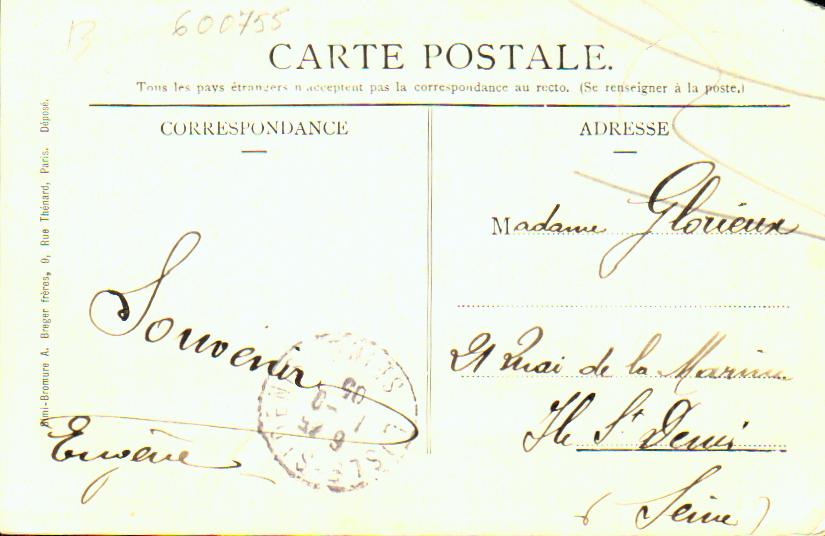 B 600755
CARTE POSTALE.
Tous les pays étrangers n'acceptent pas la correspondance au recto. (Se renseigner à la poste.)
CORRESPONDANCE
ADRESSE
Simi-Bromure A. Breger frères, 9, Rue Thénard, Paris. Déposé.
Souvenir
Eugène
Madame Glorieux
21 Quai de la Marine
Ile St Denis
(Seine)